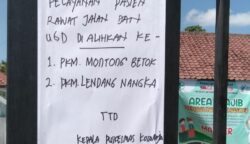 PELAYANAN PASIEN
RAWAT JALAN DAN
UGD DIALIHKAN KE -
1. PKM. MONTONG BETOK
2. PKM. LENDANG NANGKA
TTD
KEPALA PUSKESMAS
AREA WAJIB
MASKER